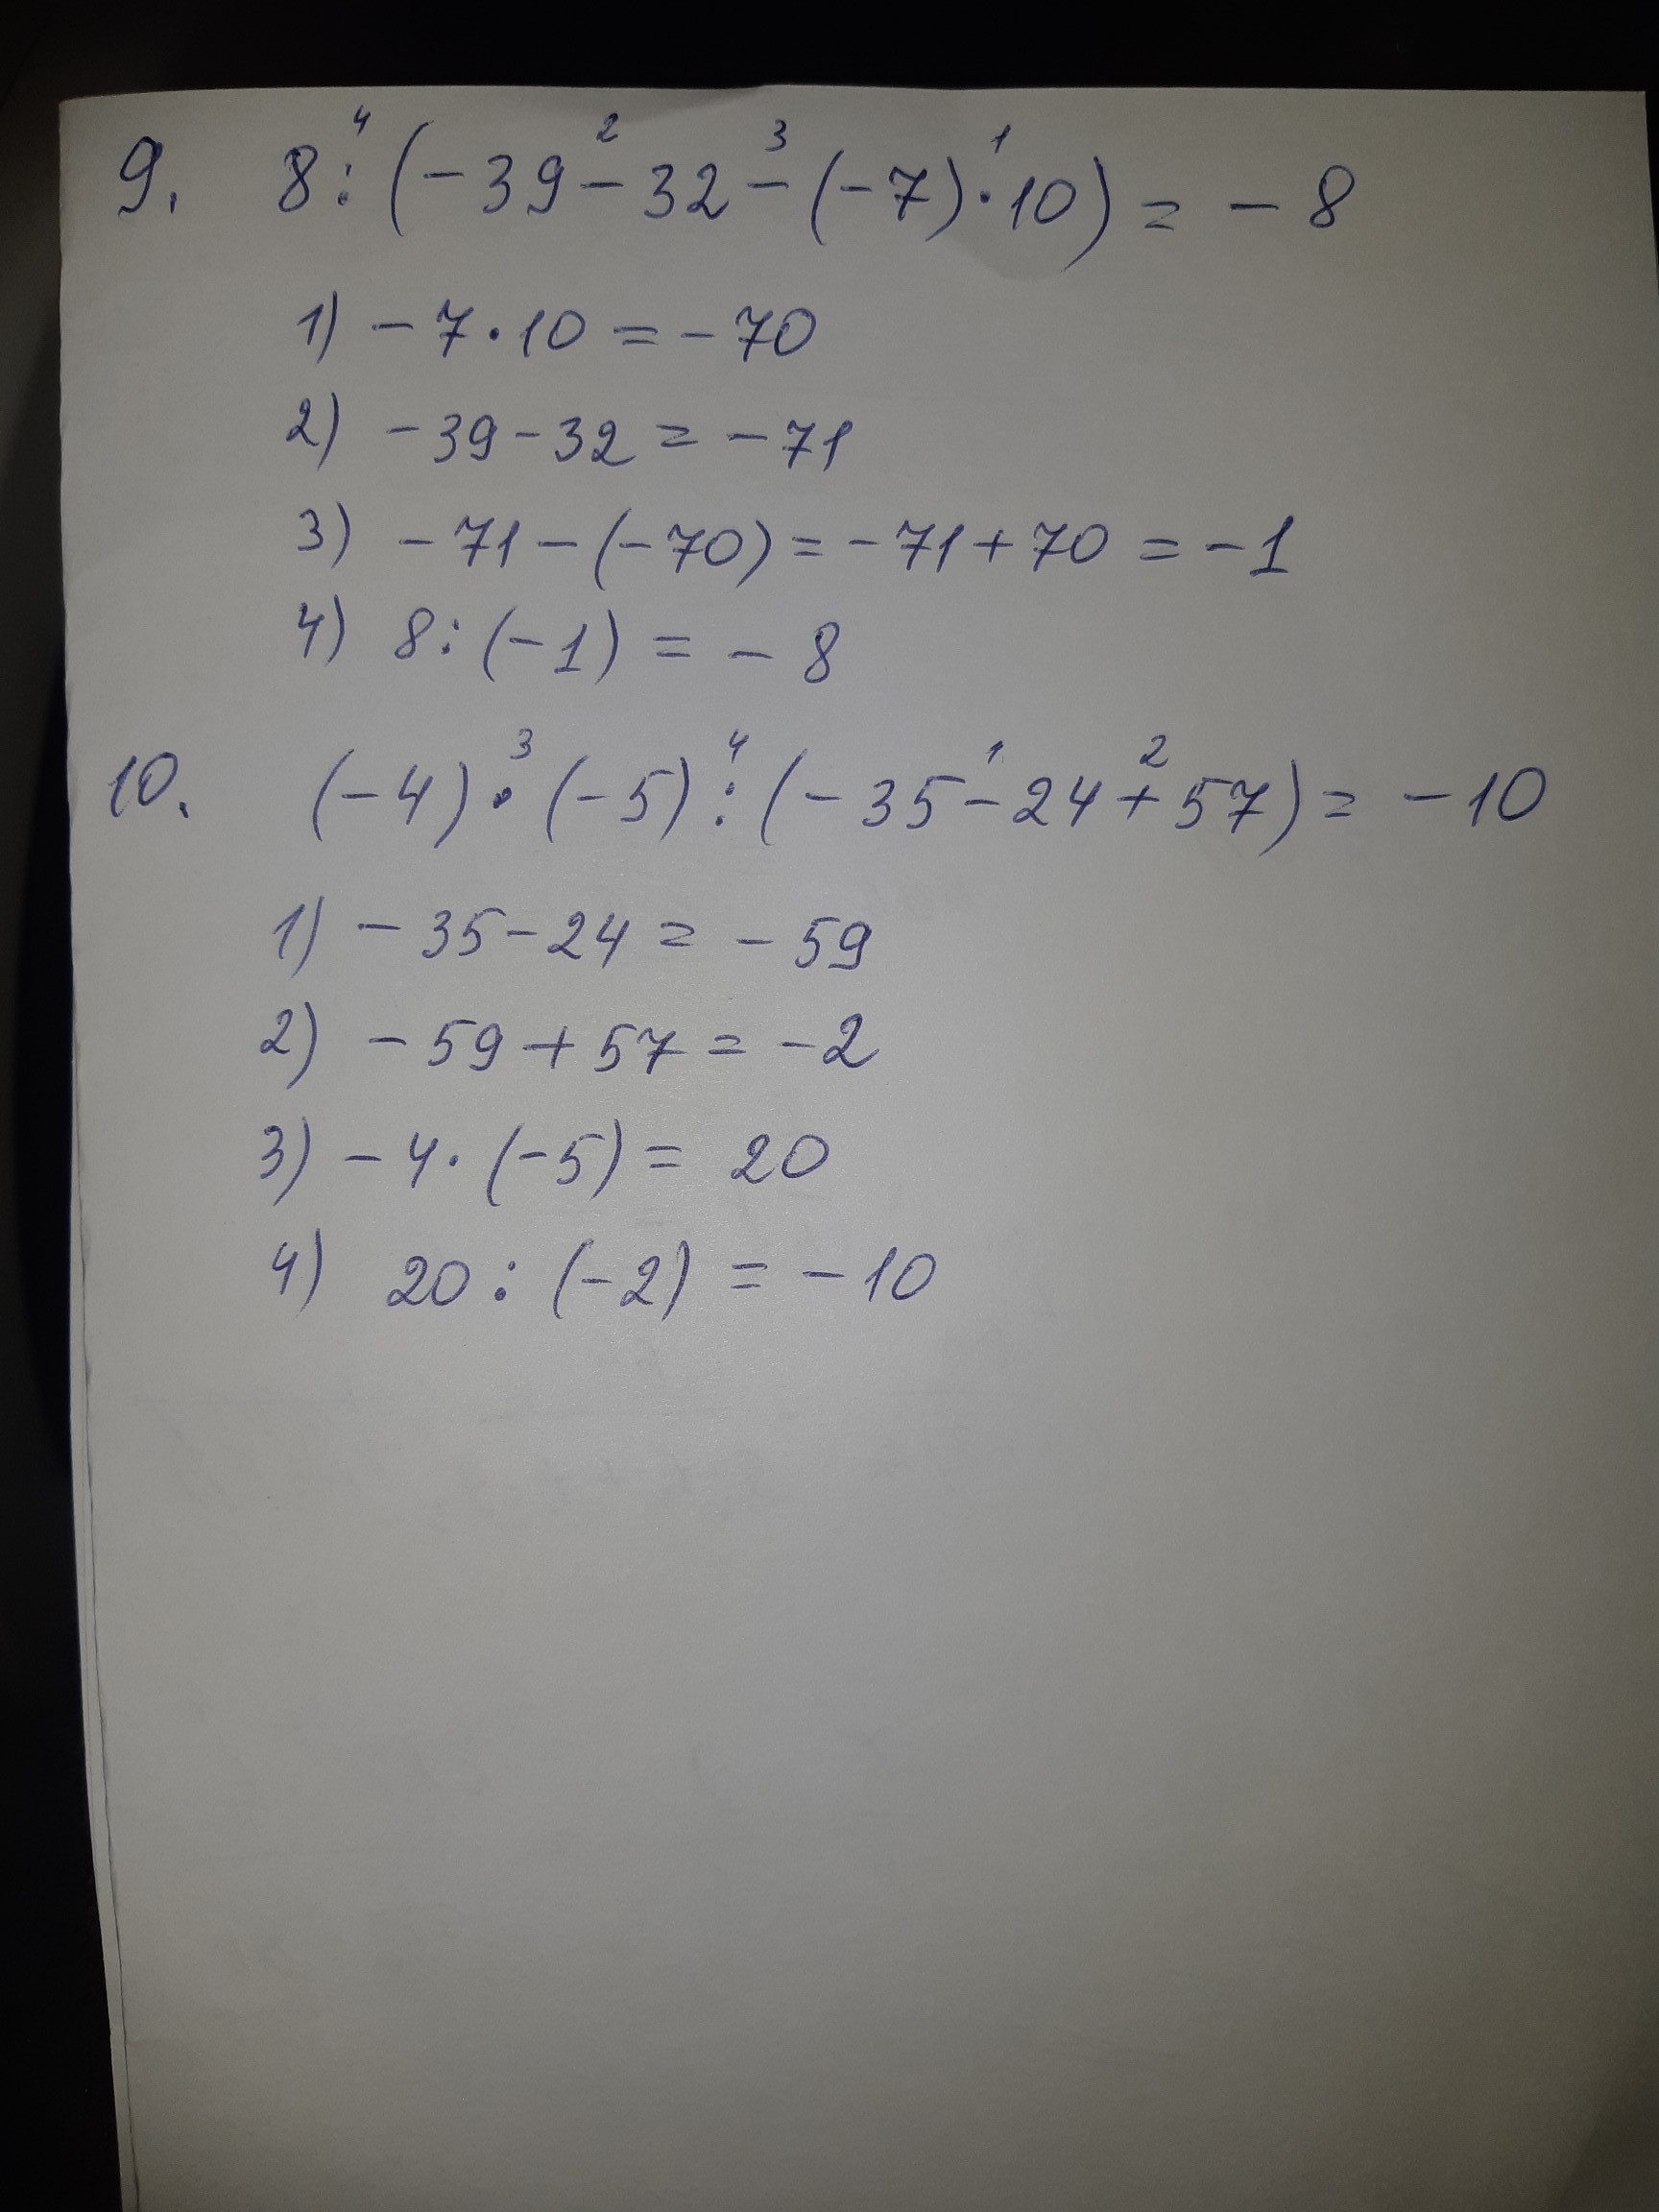 9. 8 :⁴ (-39 -² 32 -³ (-7) ·¹ 10) = -8
1) -7 · 10 = -70
2) -39 - 32 = -71
3) -71 - (-70) = -71 + 70 = -1
4) 8 : (-1) = -8
10. (-4) ·³ (-5) :⁴ (-35 -¹ 24 +² 57) = -10
1) -35 - 24 = -59
2) -59 + 57 = -2
3) -4 · (-5) = 20
4) 20 : (-2) = -10